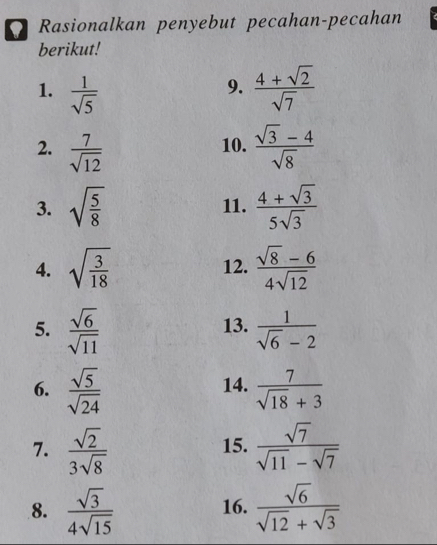 Rasionalkan penyebut pecahan-pecahan
berikut!
1. 1/√5
2. 7/√12
3. √(5/8)
4. √(3/18)
5. √6/√11
6. √5/√24
7. √2/(3√8)
8. √3/(4√15)
9. (4 + √2)/√7
10. (√3 − 4)/√8
11. (4 + √3)/(5√3)
12. (√8 − 6)/(4√12)
13. 1/(√6 − 2)
14. 7/(√18 + 3)
15. √7/(√11 − √7)
16. √6/(√12 + √3)